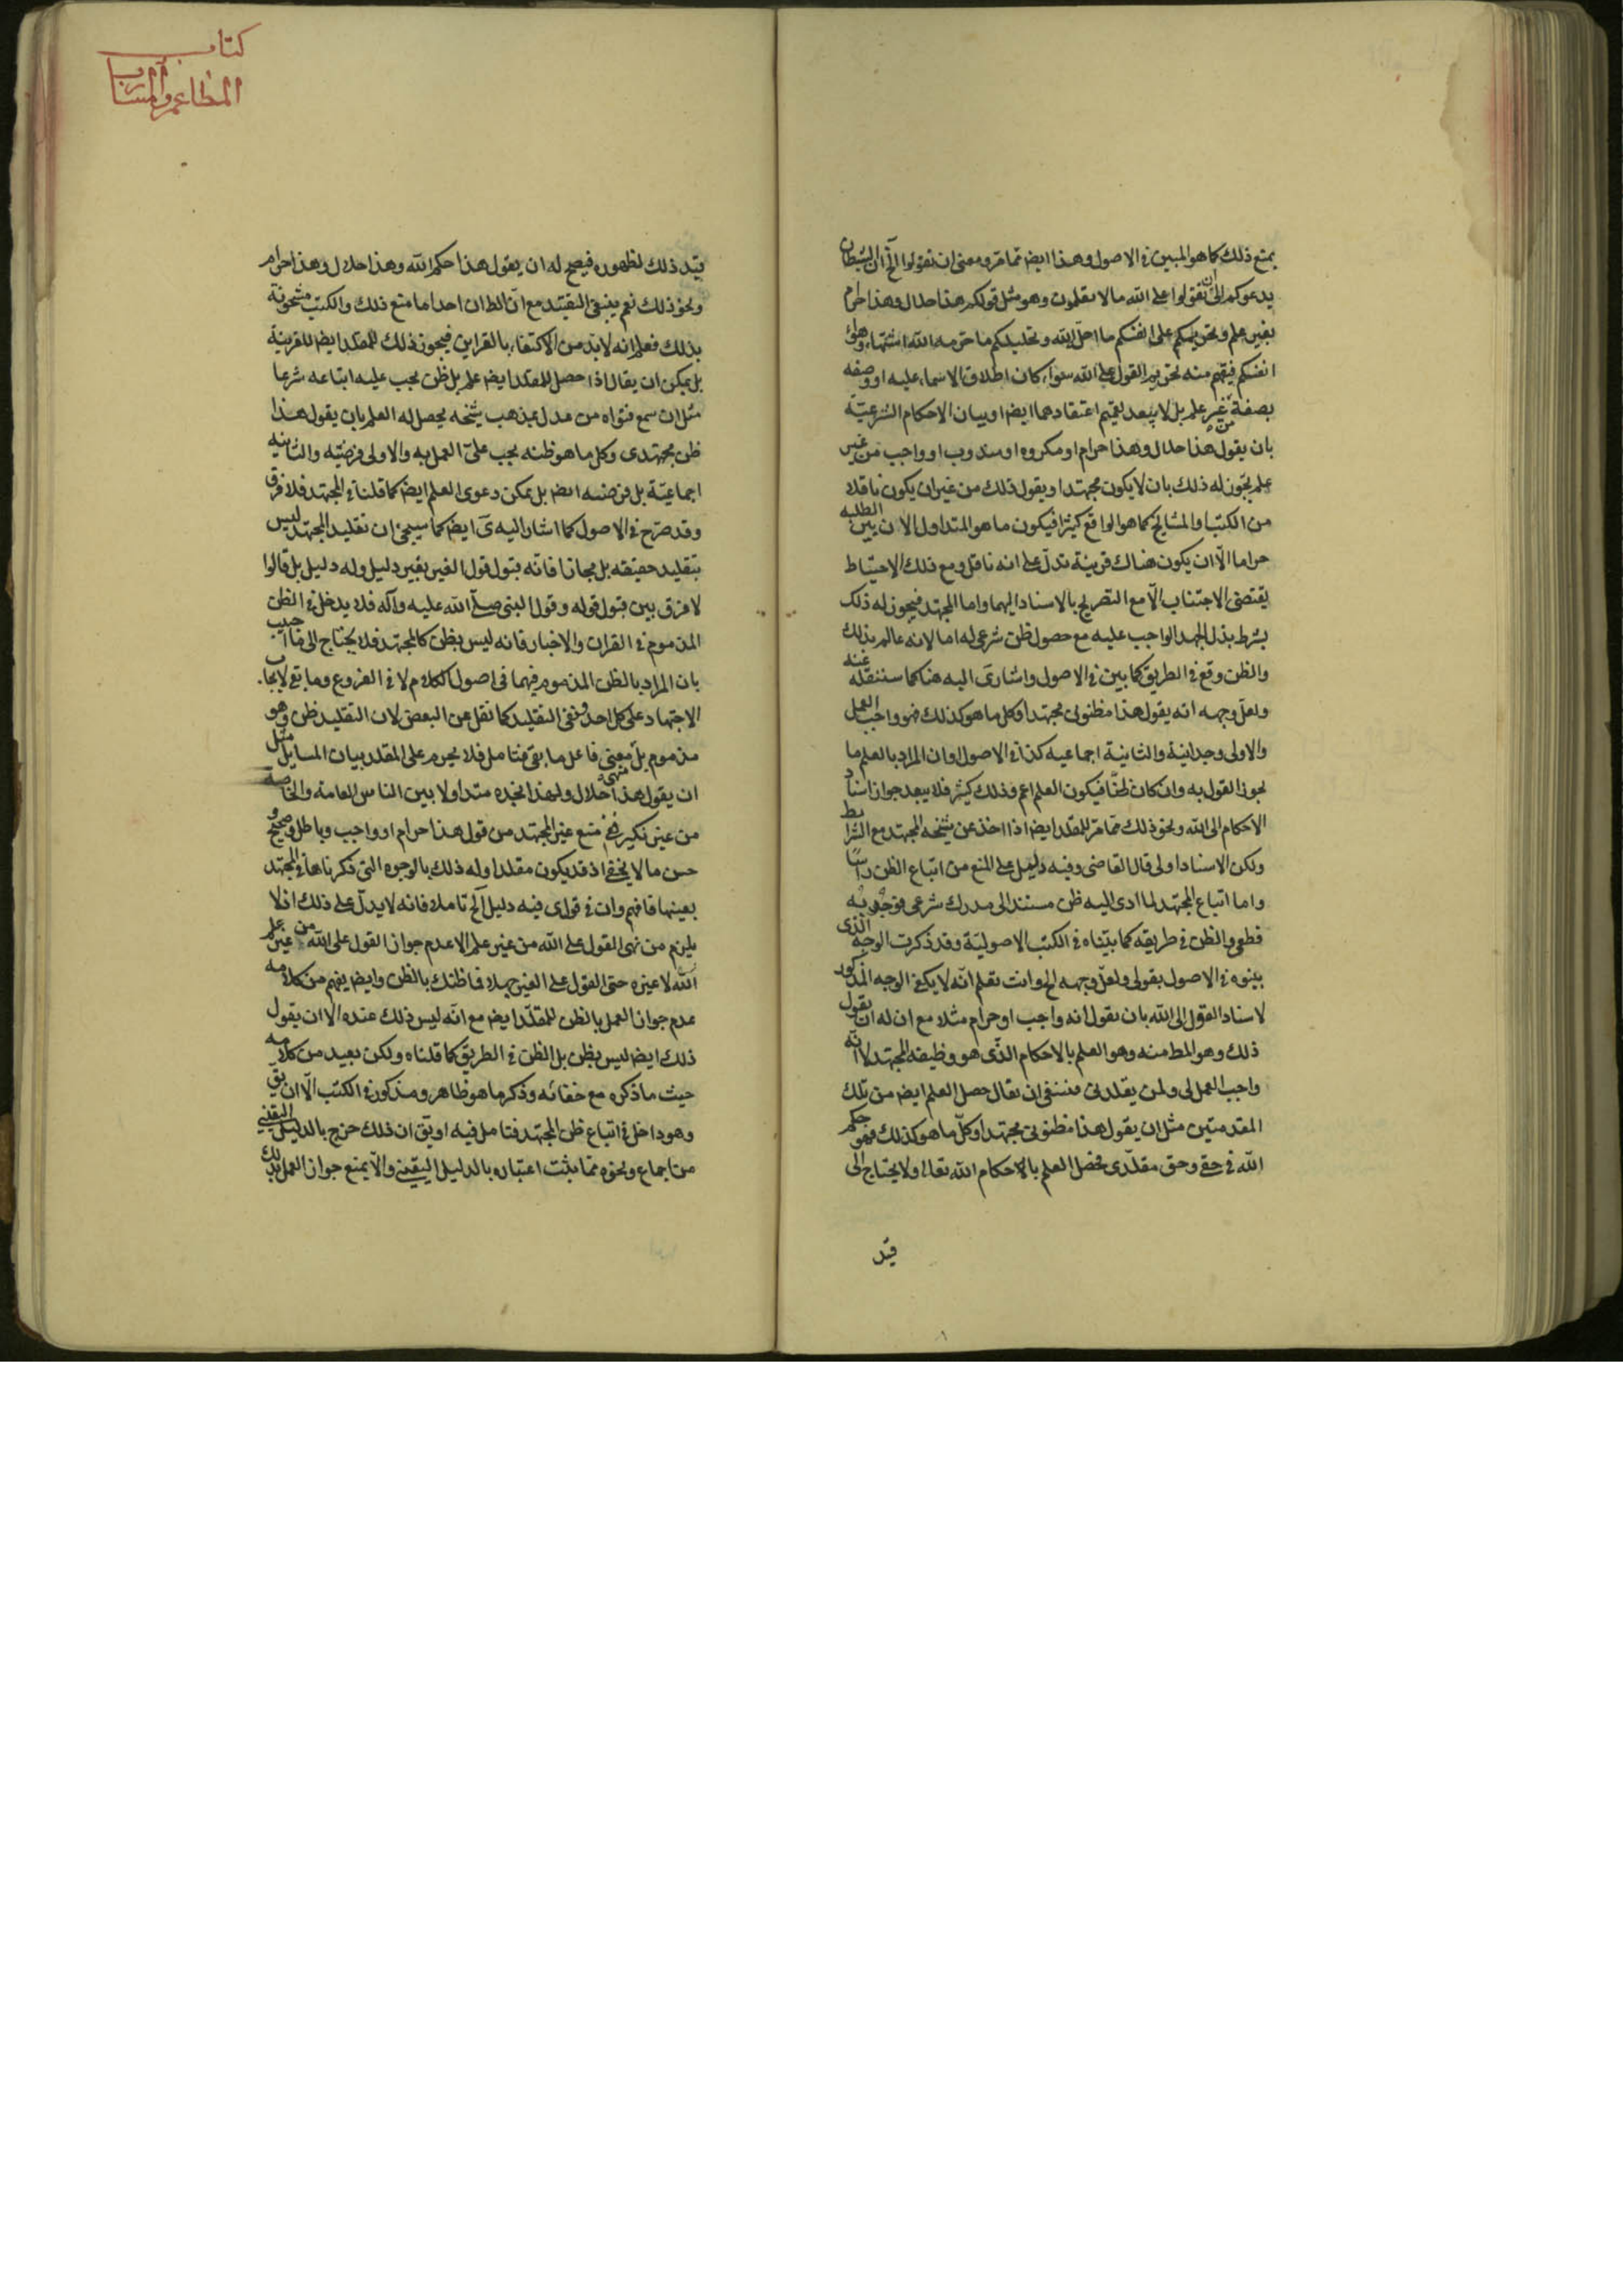 يمنع ذلك كما هو المبين في الاصول وهذا ايضا مما مر ومعنى ان تقولوا الخ ان الشيطان
يدعوكم الى ان تقولوا على الله ما لا تعلمون وهو مثل قولكم هذا حلال وهذا حرام
بغير علم وتحريمكم على انفسكم ما احل الله وتحليلكم ما حرمه الله اشتهاء وهوى
انفسكم فيفهم منه تحريم القول على الله سواء كان اطلاق الاسماء عليه او وصفه
بصفة من غير علم بل لا يبعد تعميم اعتقادهما ايضا وبيان الاحكام الشرعية
بان يقول هذا حلال وهذا حرام او مكروه او مندوب او واجب من غير
علم يجوز له ذلك بان لا يكون مجتهدا ويقول ذلك من غير ان يكون ناقلا
من الكتب او المشايخ كما هو الواقع كثيرا فيكون ما هو المتداول الان بين الطلبه
حراما الا ان يكون هناك قرينة تدل على انه ناقل ومع ذلك الاحتياط
يقتضى الاجتناب الا مع التصريح بالاسناد اليهما واما المجتهد فيجوز له ذلك
بشرط بذل الجهد الواجب عليه مع حصول ظن شرعى له اما لانه عالم بذلك
والظن وقع في الطريق كما بين في الاصول واشار ى اليه هنا كما سننقله عنه
ولعل وجهه انه يقول هذا مظنونى مجتهدا وكل ما هو كذلك فهو واجب العمل
والاولى وجدانية والثانية اجماعيه كذا في الاصول او ان المراد بالعلم ما
يجوز القول به وان كان ظنا فيكون العلم اعم وذلك كثير فلا يبعد جواز اسناد
الاحكام الى الله ونحو ذلك مما مر للمقلد ايضا اذا اخذ عن شيخه المجتهد مع الشرايط
ولكن الاسناد اولى قال القاضى وفيه دليل على المنع من اتباع الظن راسا
واما اتباع المجتهد لما ادى اليه ظن مستند الى مدرك شرعى فوجوبه
قطعى والظن في طريقه كما بيناه في الكتب الاصولية وقد ذكرت الوجه الذى
بينوه في الاصول بقولى ولعل وجهه الخ وانت تعلم انه لا يكفى الوجه المذكور
لاسناد القول الى الله بان يقول انه واجب او حرام مثلا مع ان له ان يقول
ذلك وهو المط منه وهو العلم بالاحكام الذى هو وظيفه المجتهد لا انه
واجب العمل لى ولمن يقلدنى فينبغى ان يقال حصل العلم ايضا من تلك
المقدمتين مثل ان يقول هذا مظنونى مجتهدا وكل ما هو كذلك فهو حكم
الله في حقى وحق مقلدى فحصل العلم بالاحكام الله تعالى ولا يحتاج الى
قيد
كتاب
المطاعم والمشارب
قيد ذلك لظهوره فيصح له ان يقول هذا حكم الله وهذا حلال وهذا حرام
ونحو ذلك نعم ينبغى التقييد مع ان الظ ان احدا ما منع ذلك والكتب مشحونة
بذلك فعلم انه لابد من الاكتفاء بالقراين فيجوز ذلك للمقلد ايضا للقرينة
بل يمكن ان يقال اذا حصل للمقلد ايضا علم بل ظن يجب عليه اتباعه شرعا
مثل ان سمع فتواه من عدل بمذهب شيخه يحصل له العلم بان يقول هذا
ظن مجتهدى وكل ما هو ظنه يجب على العمل به والاولى فرضيه والثانيه
اجماعية بل فرضيه ايضا بل يمكن دعوى العلم ايضا كما قلناه في المجتهد فلا فرق
وقد صرح في الاصول كما اشار اليه ى ايضا كما سيجئ ان تقليد المجتهد ليس
بتقليد حقيقه بل مجازا فانه قبول قول الغير بغير دليل وله دليل بل قالوا
لا فرق بين قبول قوله وقول النبى صلى الله عليه وآله فلا يدخل في الظن
المذموم في القران والاخبار فانه ليس بظن كالمجتهد فلا يحتاج الى ما اجيب
بان المراد بالظن المذموم فيهما فى اصول الكلام لا في الفروع وما بقى لايجاب
الاجتهاد على كل احد ونفى التقليد كما نقل عن البعض لان التقليد ظن وهو
مذموم بل معنى فاعل ما بقى فتامل فلا يحرم على المقلد بيان المسايل مثل
ان يقول هذا حلال ولهذا نجده متداولا بين الناس العامة والخاصة
من غير نكير ففى منع غير المجتهد من قول هذا حرام او واجب وباطل وصحيح
حسن ما لا يخفى اذ قد يكون مقلدا وله ذلك بالوجوه التى ذكرناها في المجتهد
بعينها فافهم وان في قولى فيه دليل الخ تاملا فانه لا يدل على ذلك اذ لا
يلزم من نهى القول على الله من غير علم الا عدم جواز القول على الله من غير علم
الله لا غيره حتى القول على الغير جهلا فما ظنك بالظن وايضا يفهم من كلامه
عدم جواز العمل بالظن للمقلد ايضا مع انه ليس ذلك عنده الا ان يقول
ذلك ايضا ليس بظن بل الظن في الطريق كما قلناه ولكن بعيد من كلامه
حيث ما ذكره مع خفائه وذكر ما هو ظاهر ومذكور في الكتب الا ان يق
وهو داخل في اتباع ظن المجتهد فتامل فيه او يق ان ذلك خرج بالدليل اليقينى
من اجماع ونحوه مما يثبت اعتباره بالدليل اليقينى والا يمنع جواز العمل بذلك